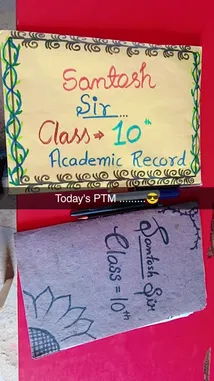 Santosh
Sir...
Class → 10th
Academic Record
Today's PTM .........😎
Santosh Sir
Class = 10th